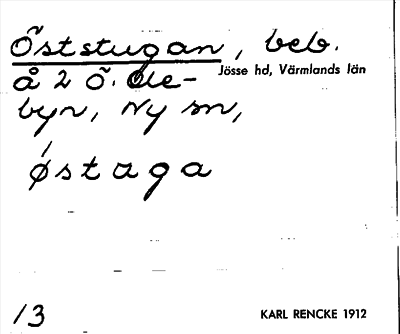 Öststugan, beb.
Jösse hd, Värmlands län
å 2 Ö. de-
byn, Ny sn,
ǿstaga
13
KARL RENCKE 1912